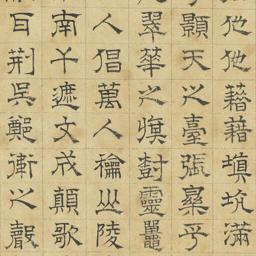 他他藉藉填坑滿
顥天之臺張樂乎
翠華之旗尌靈鼉
人倡萬人龢山陵
南干遮文成顛歌
耳荊吳鄭衛之聲